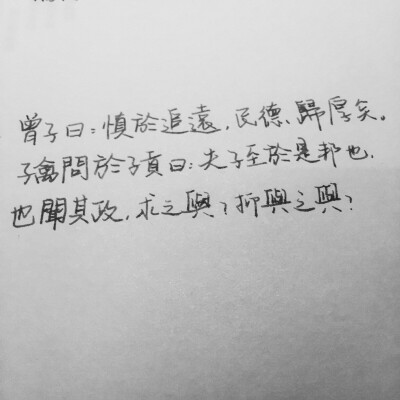 曾子曰：慎於追遠，民德、歸厚矣。
子禽問於子貢曰：夫子至於是邦也，
也聞其政，求之與？抑與之與？